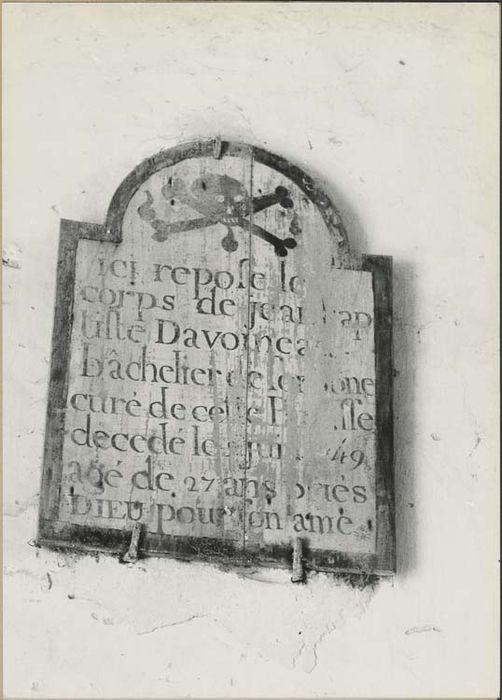 ici repose le
corps de jean Bap
tiste Davoine
Bâchelier de sorbonne
curé de cette Paroisse
decedé le juin 49
agé de 27 ans priés
DIEU pour son ame